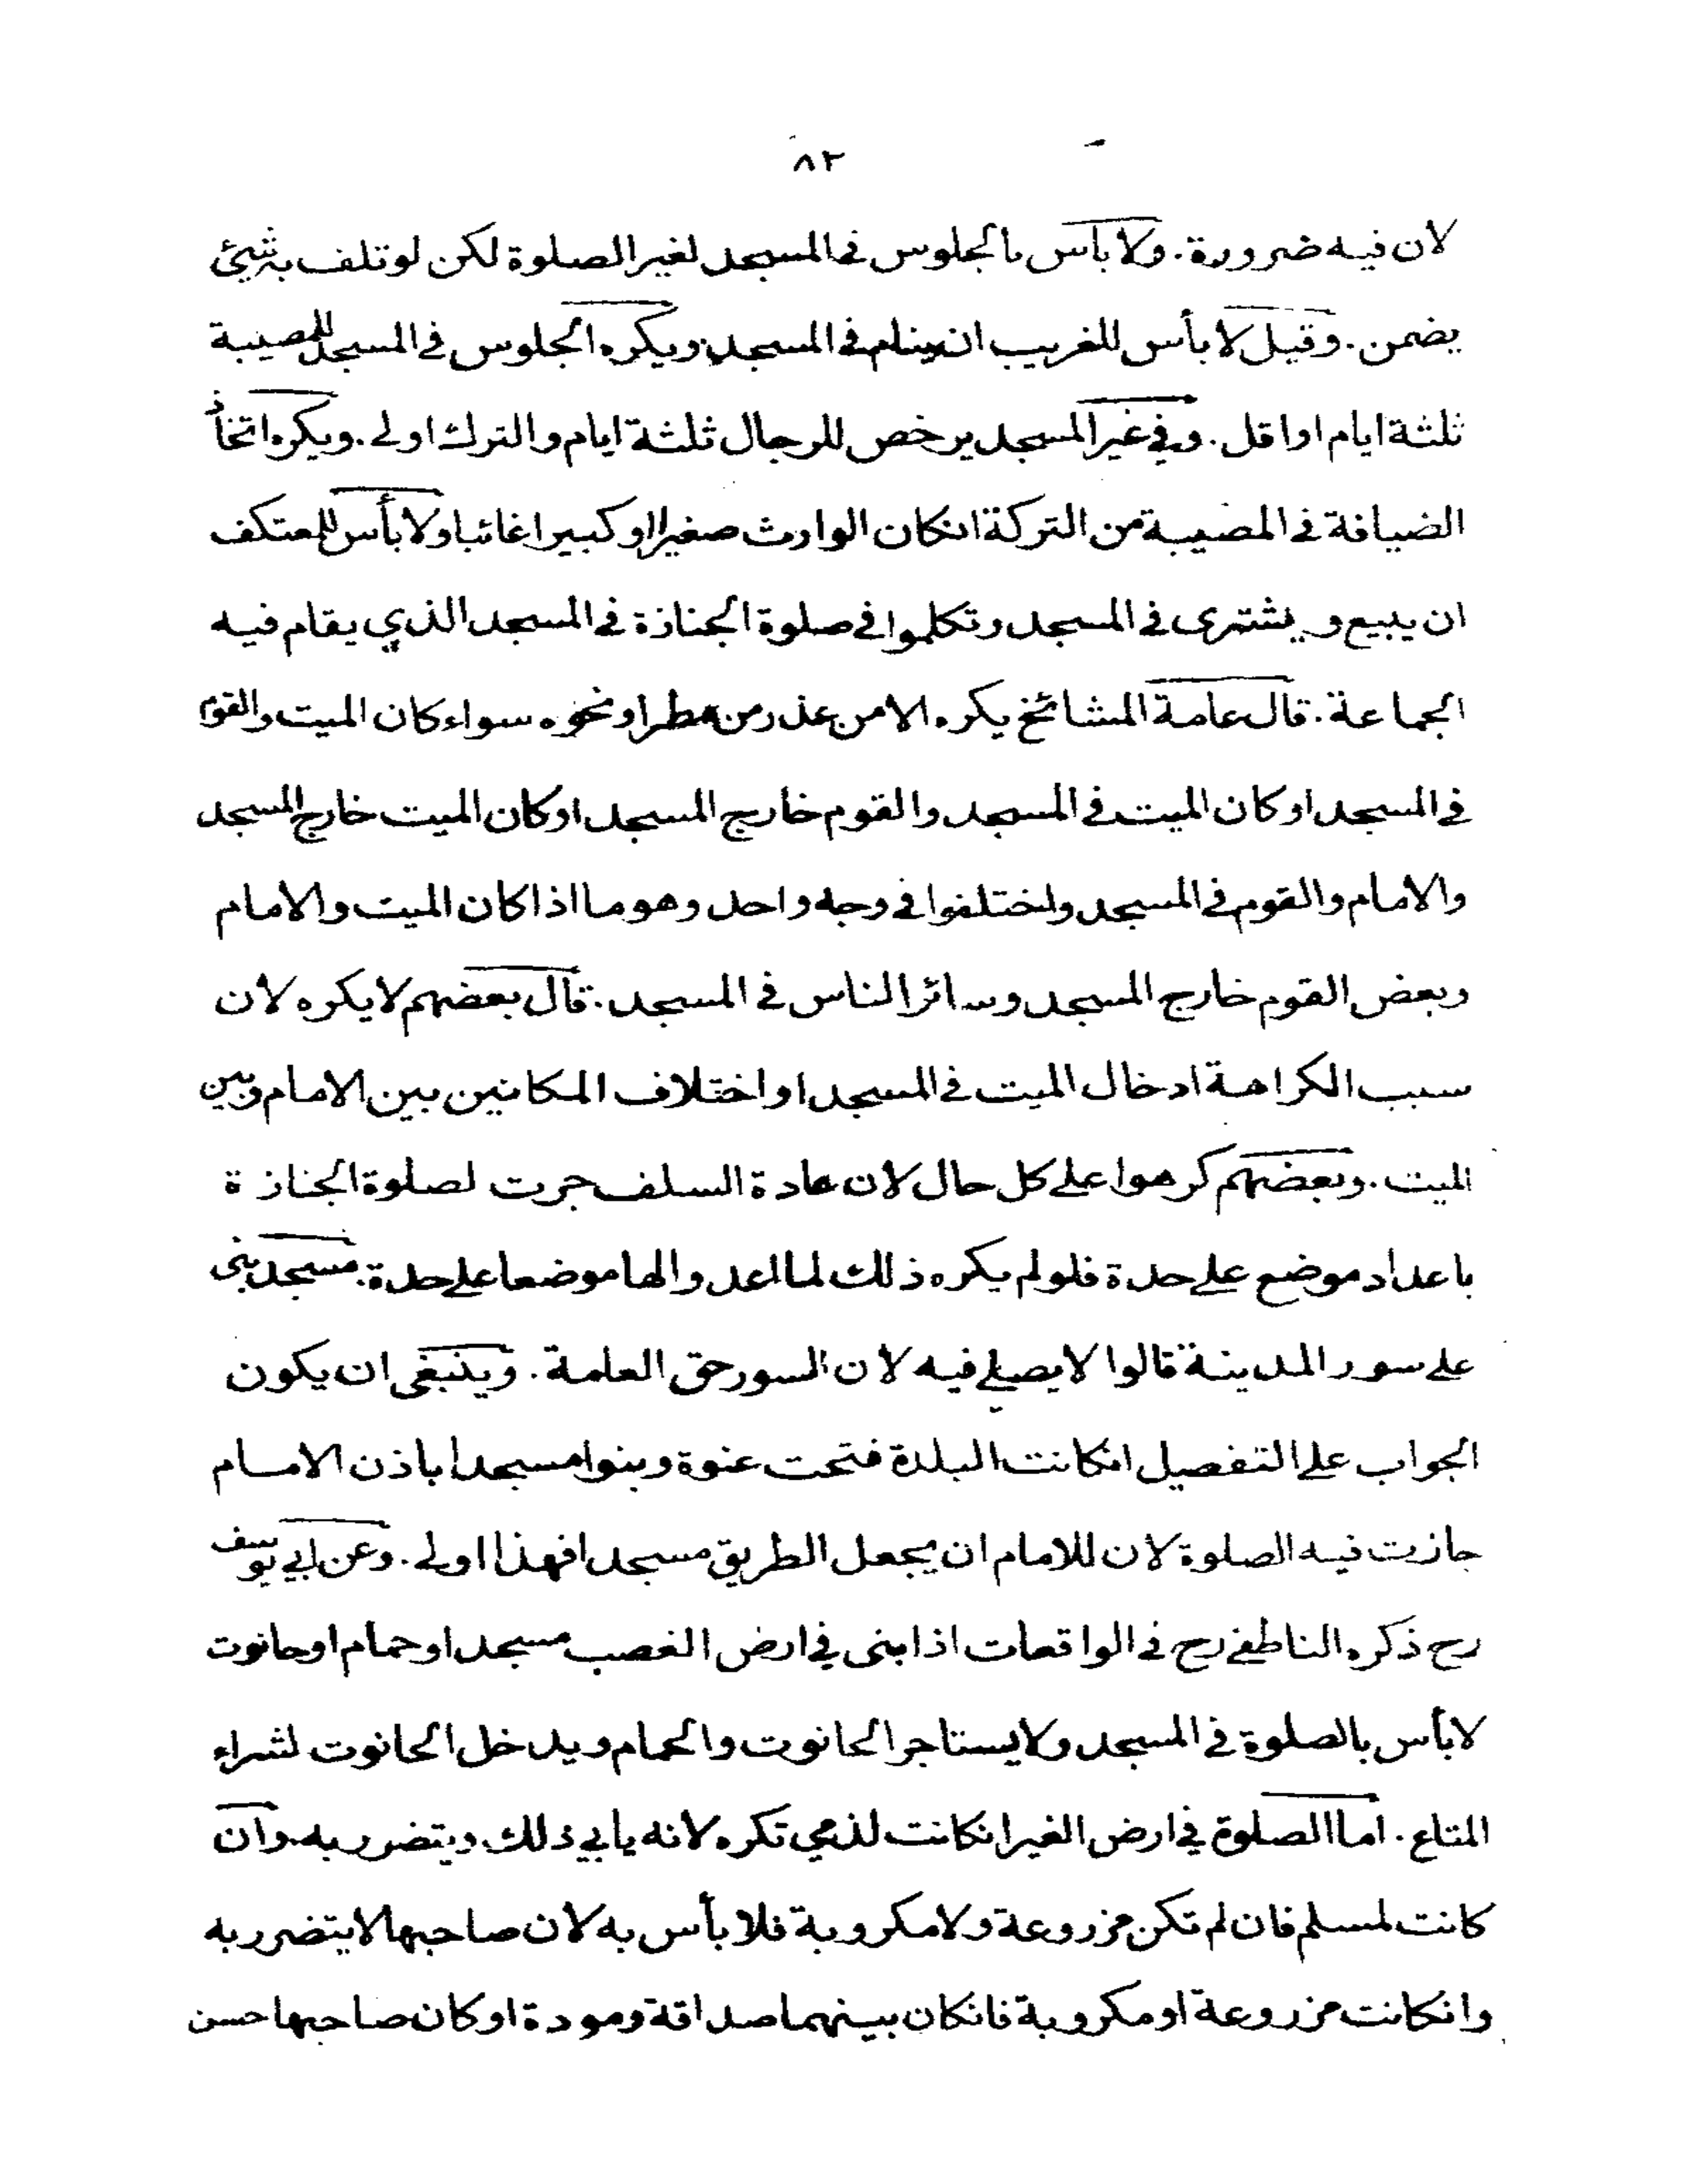 ٨٢
لان فيه ضرورة. ولا بأس بالجلوس في المسجد لغير الصلوة لكن لو تلف به شيئ
يضمن. وقيل لا بأس للغريب ان ينام في المسجد ويكره الجلوس في المسجد للمصيبة
ثلثة ايام او اقل. وفي غير المسجد يرخص للرجال ثلثة ايام والترك اولى. ويكره اتخاذ
الضيافة في المصيبة من التركة انكان الوارث صغيرا او كبيرا غائبا ولا بأس للمعتكف
ان يبيع ويشترى في المسجد وتكلموا في صلوة الجنازة في المسجد الذي يقام فيه
الجماعة. قال عامة المشائخ يكره الا من عذر من مطر او نحوه سواء كان الميت والقوم
في المسجد او كان الميت في المسجد والقوم خارج المسجد او كان الميت خارج المسجد
والامام والقوم في المسجد واختلفوا في وجه واحد وهو ما اذا كان الميت والامام
وبعض القوم خارج المسجد وسائر الناس في المسجد. قال بعضهم لا يكره لان
سبب الكراهة ادخال الميت في المسجد او اختلاف المكانين بين الامام وبين
الميت. وبعضهم كرهوا على كل حال لان عادة السلف جرت لصلوة الجنازة
باعداد موضع على حدة فلو لم يكره ذلك لما اعدوا لها موضعا على حدة. مسجد بنى
على سور المدينة قالوا لا يصلى فيه لان السور حق العامة. وينبغى ان يكون
الجواب على التفصيل انكانت البلدة فتحت عنوة وبنوا مسجدا باذن الامام
جازت فيه الصلوة لان للامام ان يجعل الطريق مسجدا فهذا اولى. وعن ابي يوسف
رح ذكره الناطفي رح في الواقعات اذا بنى في ارض الغصب مسجدا وحمام او حانوت
لا بأس بالصلوة في المسجد ولا يستاجر الحانوت والحمام ويدخل الحانوت لشراء
المتاع. اما الصلوة في ارض الغير انكانت لذمي تكره لانه يابي ذلك ويتضرر به وان
كانت لمسلم فان لم تكن مزروعة ولا مكروبة فلا بأس به لان صاحبها لا يتضرر به
وانكانت مزروعة او مكروبة فانكان بينهما صداقة ومودة او كان صاحبها حسن